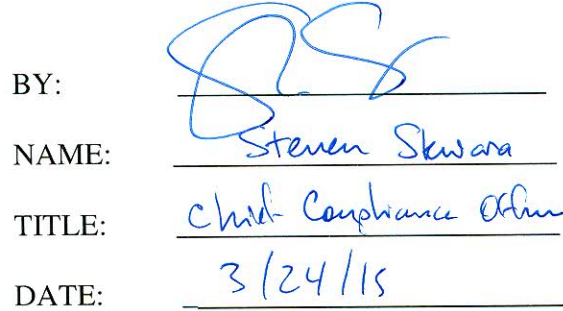 BY:
NAME: Steven Skwara
TITLE: Chief Compliance Officer
DATE: 3/24/15